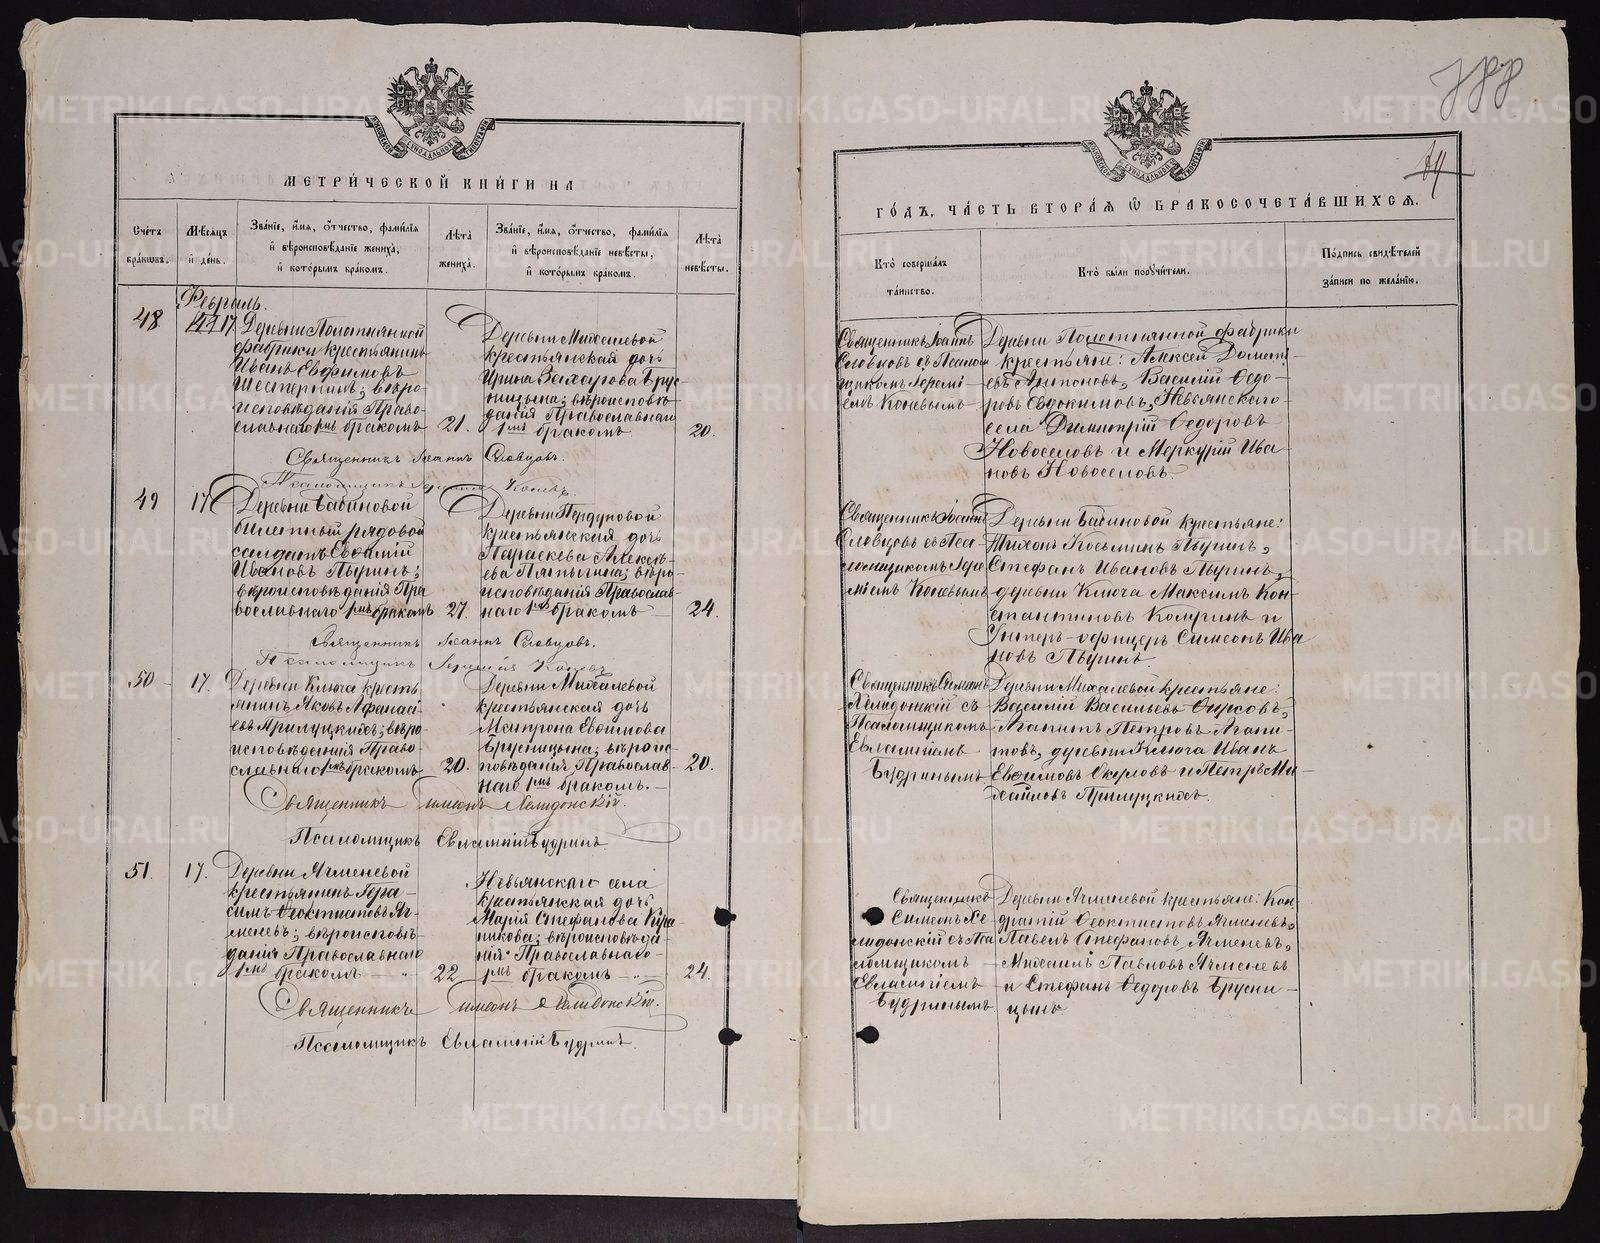 МЕТРИ́ЧЕСКОЙ КНИ́ГИ НА
Сче́тъ бра́ковъ.
Мѣ́сяцъ и́ де́нь.
Зва́нїе, и́мя, о́тчество, фами́лїя и́ вѣроисповѣ́данїе жениха́, и́ кото́рымъ бра́комъ.
Лѣ́та жениха́.
Зва́нїе, и́мя, о́тчество, фами́лїя и́ вѣроисповѣ́данїе невѣ́сты, и́ кото́рымъ бра́комъ.
Лѣ́та невѣ́сты.
Февраль.
48
17
Деревни Полотнянной
фабрики крестьянинъ
Иванъ Евфимовъ
Шестернинъ; вѣро-
исповѣданія Право-
славнаго 1мъ бракомъ
21.
Деревни Михалевой
крестьянская дочь
Ирина Захарова Брус-
ницына; вѣроисповѣ-
данія Православнаго
1мъ бракомъ.
20.
Священникъ Іоаннъ Словцовъ.
Псаломщикъ Іеремія Коневъ.
49
17
Деревни Бабиновой
билетный рядовой
солдатъ Евфимій
Ивановъ Пыринъ;
вѣроисповѣданія Пра
вославнаго 1мъ бракомъ
27.
Деревни Пердуновой
крестьянская дочь
Параскева Алексѣ-
ева Пятыгина; вѣро-
исповѣданія Православ-
наго 1мъ бракомъ
24.
Священникъ Іоаннъ Словцовъ.
Псаломщикъ Іеремія Коневъ
50
17.
Деревни Ключа кресть
янинъ Яковъ Афанась-
евъ Прилуцкихъ; вѣро-
исповѣданія Право-
славнаго 1мъ бракомъ
20.
Деревни Михалевой
крестьянская дочь
Матрона Евфимова
Брусницына; вѣроис-
повѣданія Православ-
наго 1мъ бракомъ.
20.
Священникъ Симеонъ Хелидонскій.
Псаломщикъ Евлампій Будринъ.
51.
17.
Деревни Ячменевой
крестьянинъ Гера-
симъ Феоктистовъ Яч-
меневъ; вѣроисповѣ-
данія Православнаго
1мъ бракомъ
22
Невьянскаго села
крестьянская дочь
Марія Стефанова
вѣроисповѣда-
нія Православнаго
1мъ бракомъ
24.
Священникъ Симеонъ Хелидонскій.
Псаломщикъ Евлампій Будринъ
ГО́ДЪ, ЧА́СТЬ ВТОРА́Я Ѡ БРАКОСОЧЕТА́ВШИХСЯ.
Кто̀ соверша́лъ та́инство.
Кто̀ бы́ли поручи́тели.
По́дпись свидѣ́телей за́писи по жела́нїю.
Священникъ Іоаннъ
Словцовъ съ Псалом
щикомъ Іеремі-
емъ Коневымъ
Деревни Полотнянной фабрики
крестьяне: Алексѣй Дометі-
евъ Антоновъ, Василій Федо-
ровъ Евдокимовъ, Невьянскаго
села Димитрій Федоровъ
Новоселовъ и Меркурій Ива
новъ Новоселовъ.
Священникъ Іоаннъ
Словцовъ съ Пса-
ломщикомъ Іере
міемъ Коневымъ
Деревни Бабиновой крестьяне:
Тихонъ Косьминъ Пыринъ,
Стефанъ Ивановъ Пыринъ,
деревни Ключа Максимъ Кон-
стантиновъ Комринъ и
Унтеръ-офицеръ Симеонъ Ива
новъ Пыринъ
Священникъ Симеонъ
Хелидонскій съ
Псаломщикомъ
Евлампіемъ
Будринымъ
Деревни Михалевой крестьяне:
Василій Васильевъ Фирсовъ,
Агапитъ Петровъ Агапи-
товъ, деревни Ключа Иванъ
Евфимовъ Окуловъ и Петръ Ми-
хайловъ Прилуцкихъ.
Священникъ
Симеонъ Хе-
лидонскій съ Пса
ломщикомъ
Евлампіемъ
Будринымъ
Деревни Ячменевой крестьяне: Кон
дратій Феоктистовъ Ячменевъ,
Павелъ Стефановъ Ячменевъ,
Михаилъ Павловъ Ячменевъ
и Стефанъ Федоровъ Брусни-
цынъ
METRIKI.GASO-URAL.RU